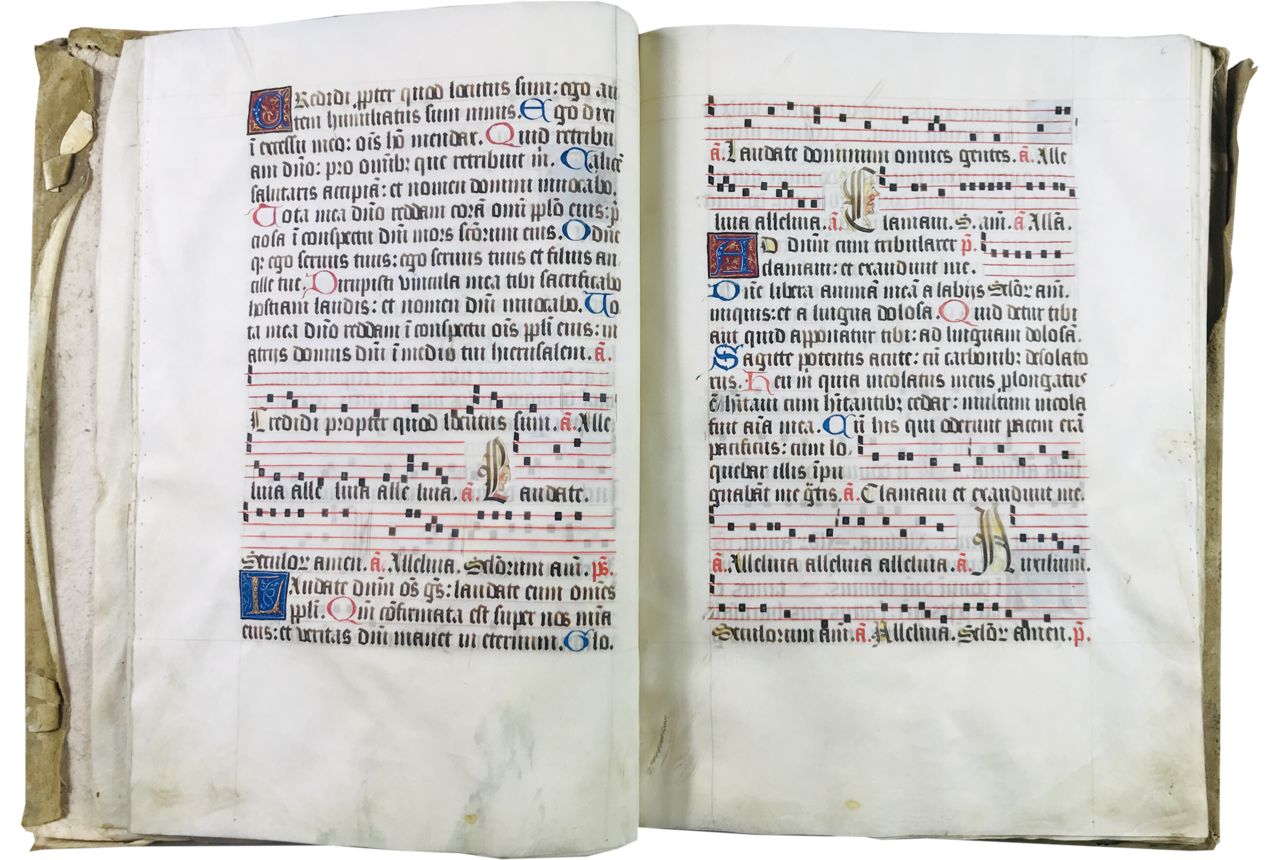 CRedidi ꝓpter quod locutus sum: ego au
tem humiliatus sum nimis. Ego dixi
ī excessu meo: oīs hō mendax. Quid retribu
am dn̄o: pro omīb; que retribuit m̄. Calicē
salutaris accipiā: et nomen domini inuocabo.
Uota mea dn̄o reddam corā omi pplō eius: p̄
ciosa ī conspectu dn̄i mors sc̄orum eius. O dn̄e
q; ego seruus tuus: ego seruus tuus et filius an
cille tue. Dirupisti vincula mea tibi sacrificabo
hostiam laudis: et nomen dn̄i inuocabo. Uo
ta mea dn̄o reddam ī conspectu oīs ppli eius: in
atriis domus dn̄i ī medio tui hierusalem. ā.
Credidi propter quod locutus sum. ā. Alle
luia alle luia alle luia. ā. Laudate.
Seculoꝝ amen. ā. Alleluia. Seloꝝum am̄. ps̄.
LAudate dn̄m oēs gēs: laudate eum omnes
ppli. Qm̄ cōfirmata est super nos mīa
eius: et veritas dn̄i manet in eternum. Glo.
6
ā. Laudate dominum omnes gentes. ā. Alle
luia alleluia. ā. Clamaui. S. am̄. ā. Allā.
AD dn̄m cum tribularer p̄.
clamaui: et exaudiuit me.
Dn̄e libera animā meā a labijs Seloꝝ am̄.
iniquis: et a lingua dolosa. Quid detur tibi
aut quid apponatur tibi: ad linguam dolosā.
Sagitte potentis acute: cū carbonib; desolato
riis. Heu m̄ quia incolatus meus ꝓlongatus
ē hītaui cum hītantib; cedar: multum incola
fuit aīa mea. Cū his qui oderunt pacem erā
pacificus: cum lo
quebar illis īpu
gnabāt me gr̄tis. ā. Clamaui et exaudiuit me.
ā. Alleluia alleluia alleluia. ā. Auxilium.
Seculorum am̄. ā. Alleluia. Seloꝝ amen. p̄.